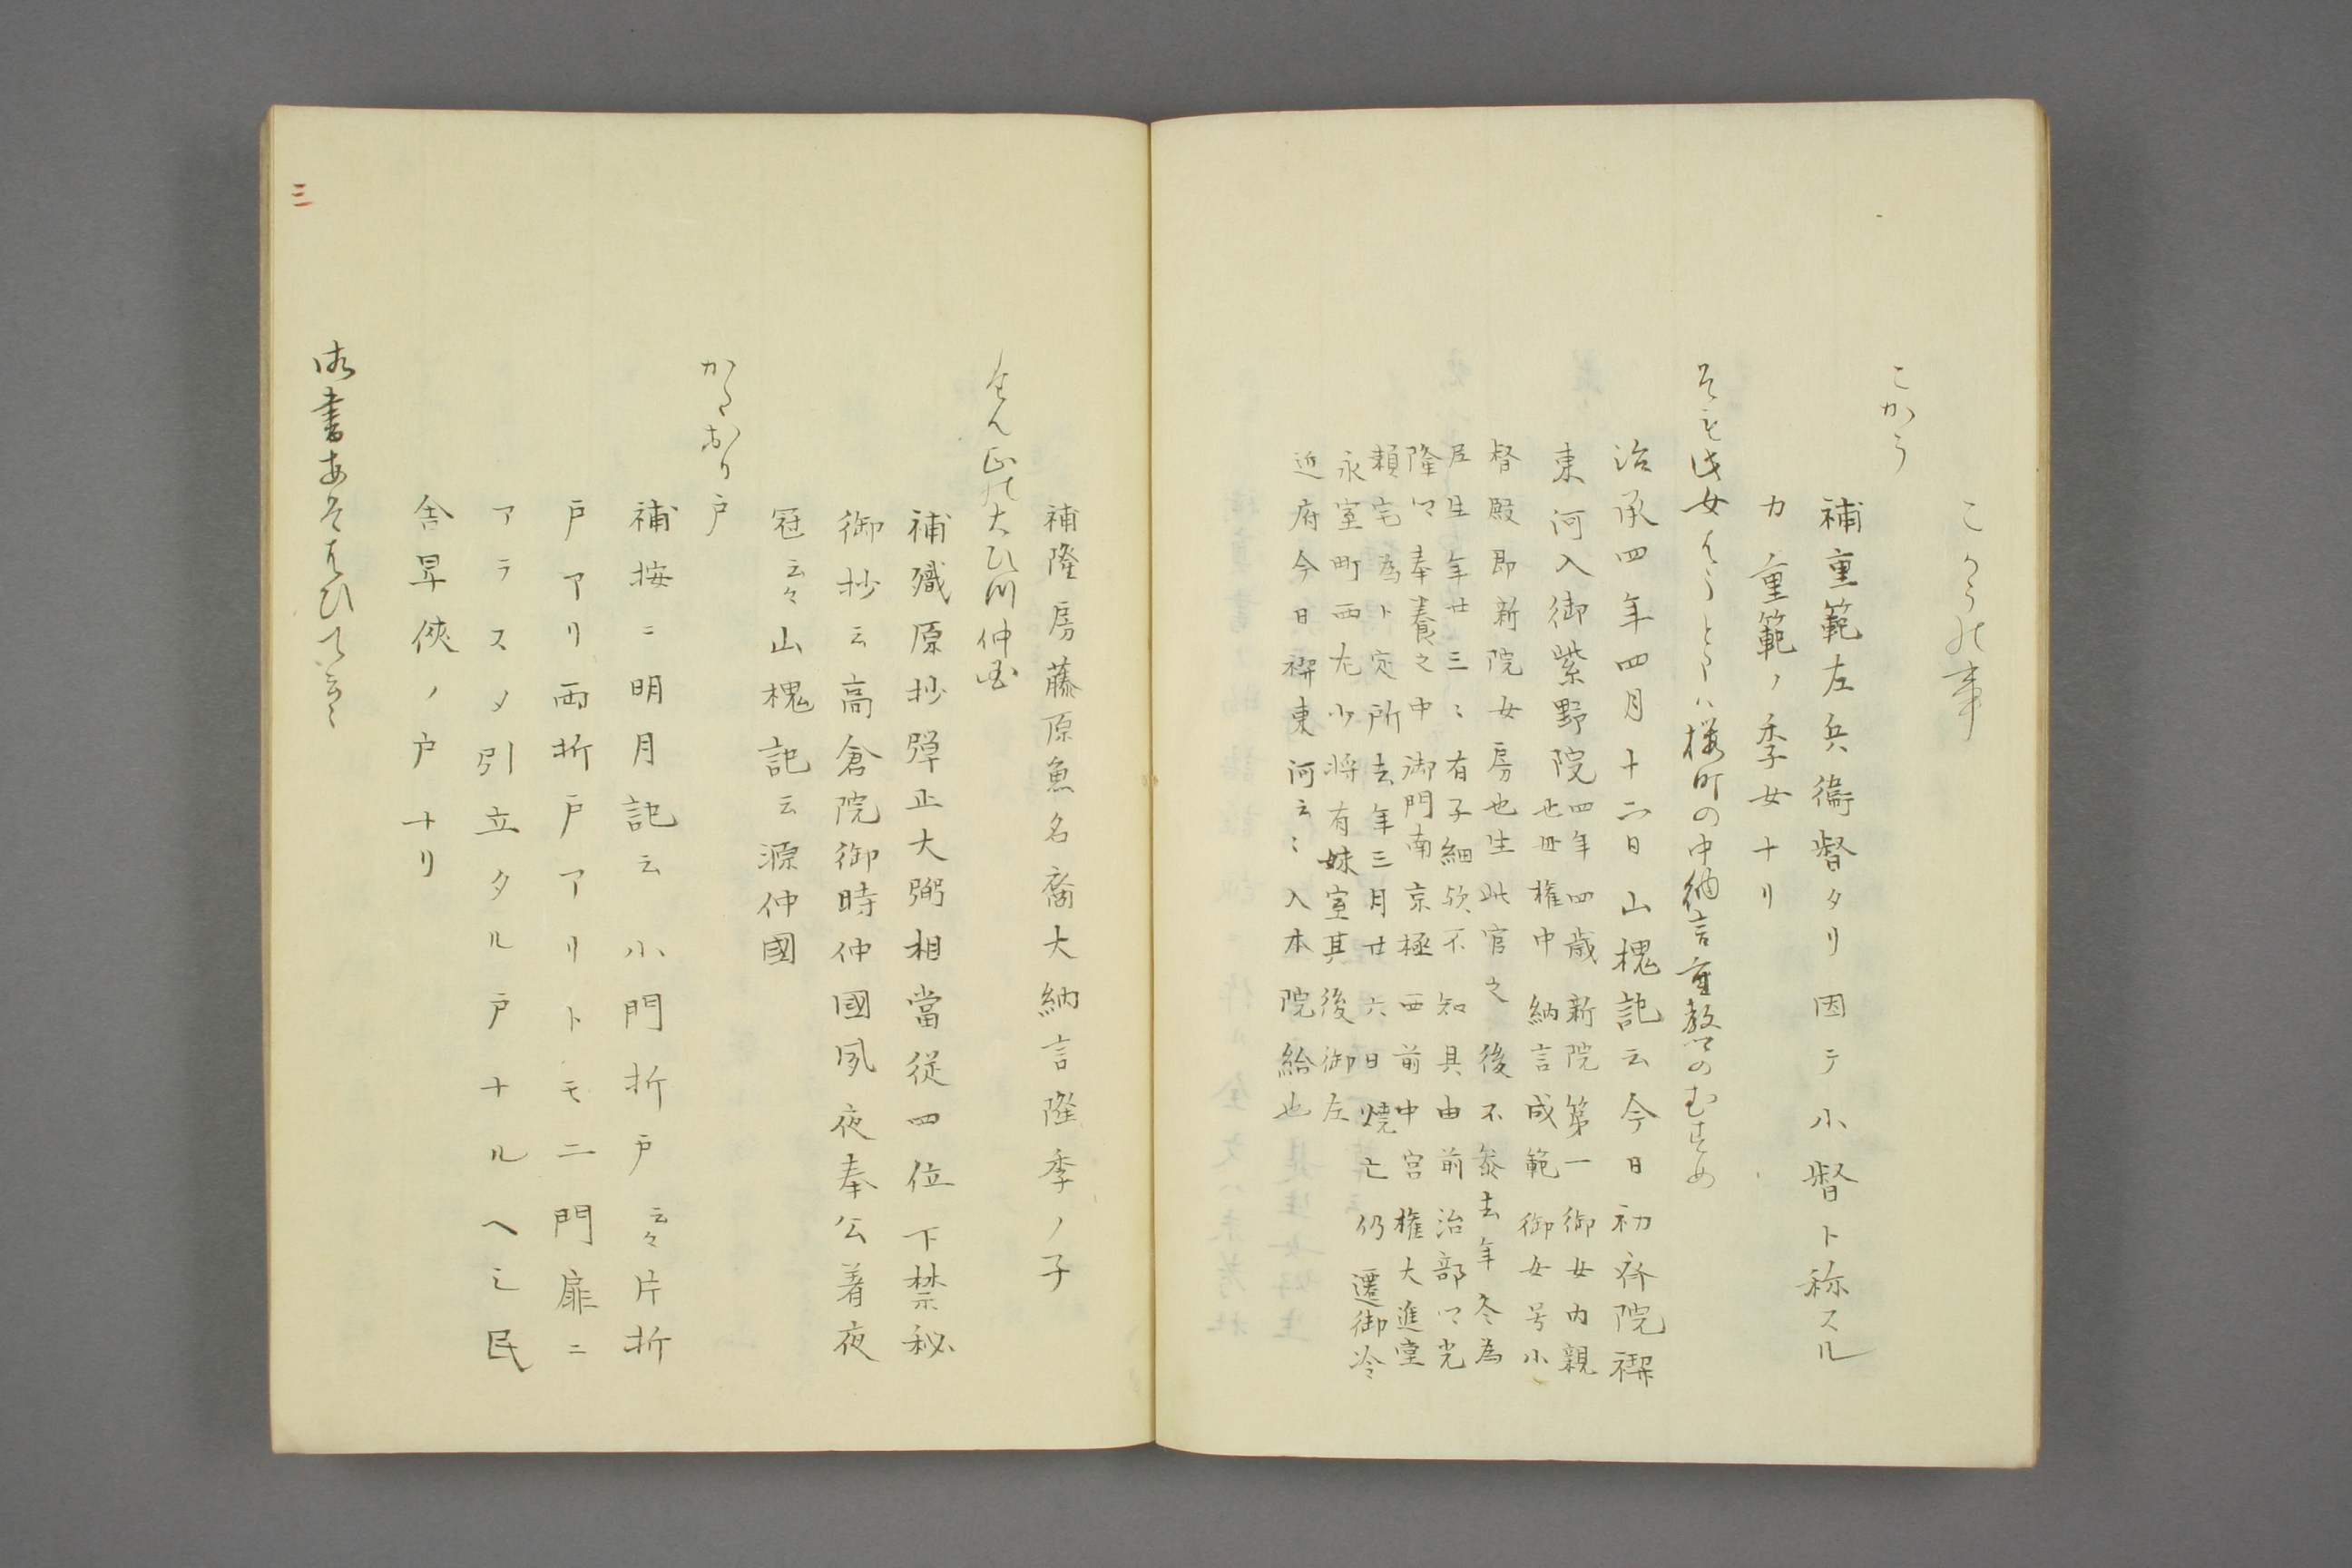 こかうの事
こかう
補重範左兵衞督タリ因テ小督ト称スル
カ重範ノ季女ナリ
そも此女はうと申は桜町の中納言重教のむすめ
治承四年四月十二日山槐記云今日初斎院禊
東河入御紫野院四年四歳新院第一御女内親
也母権中納言成範御女号小
督殿即新院女房也生此宮之後不参去年冬為
尼生年廿三〻有子細欤不知具由前治部卿光
隆卿奉養之中御門南京極西前中宮権大進堂
頼宅為卜定所去年三月廿六日焼亡仍遷御冷
永室町西左少将有妹室其後御左
近府今日禊東河云〻入本院給也
補隆房藤原魚名裔大納言隆季ノ子
たん正の大ひつ仲国
補職原抄弾正大弼相當従四位下禁秘
御抄云高倉院御時仲國夙夜奉公着夜
冠云々山槐記云源仲國
かたおり戸
補按ニ明月記云小門折戸云々片折
戸アリ両折戸アリトモ二門扉ニ
アラスメ引立タル戸ナルヘシ民
舎旱侠ノ戸ナリ
御書あそはひて
三